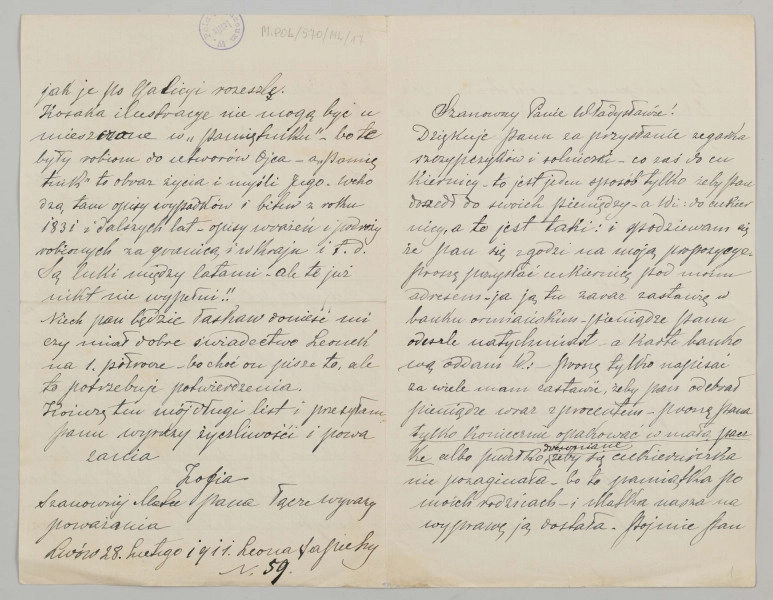 M.POL/570/ML/17
Szanowny Panie Władysławie!
Dziękuję panu za przysłanie zegarka
szczypczyków i solniczki – co zaś do cu
kiernicy – to jest jeden sposób tylko żeby pan
doszedł do swoich pieniędzy – a W: do cukier
nicy, a to jest taki: i spodziewam się
że pan się zgodzi na moją propozycye –
Proszę przysłać cukiernicę pod moim
adresem – ja ją tu zaraz zastawię w
banku ormiańskim – pieniądze panu
odeszlę natychmiast – a kartę banko
wą oddam W.: – Proszę tylko napisać
za wiele mam zastawić, żeby pan odebrał
pieniądze wraz z procentem – proszę pana
tylko koniecznie opakować w małą pacz
kę albo pudełko drewniane żeby ta cukierniczka
nie pozaginała – bo to pamiątka po
moich rodzicach – i Matka nasza na
wyprawę ją dostała – Pójmie Pan
jak je po Galicyi rozeszlę.
Kosaka ilustracye nie mogą być u
mieszczane w „Pamiętniku" – bo te
były robione do utworów Ojca – a „Pamię
tnik" to obraz życia i myśli Jego. Wcho
dzą tam opisy wypadków i bitew z roku
1831 i dalszych lat – opisy wrażeń i podróży
robionych za granicą i w kraju i t. d.
Są luki między latami – ale te już
nikt nie wypełni!!
Niech pan będzie łaskaw donieść mi
czy miał dobre świadectwo Leonek
na 1. półrocze – bo choć on pisze to, ale
to potrzebuje potwierdzenia.
Kończę tu mój długi list i przesyłam
panu wyrazy życzliwości i powa
żania
Zofia
Szanownej Matce pana łączę wyrazy
poważania
Lwów 28. Lutego 1911. Leona Sapiehy
N. 59.